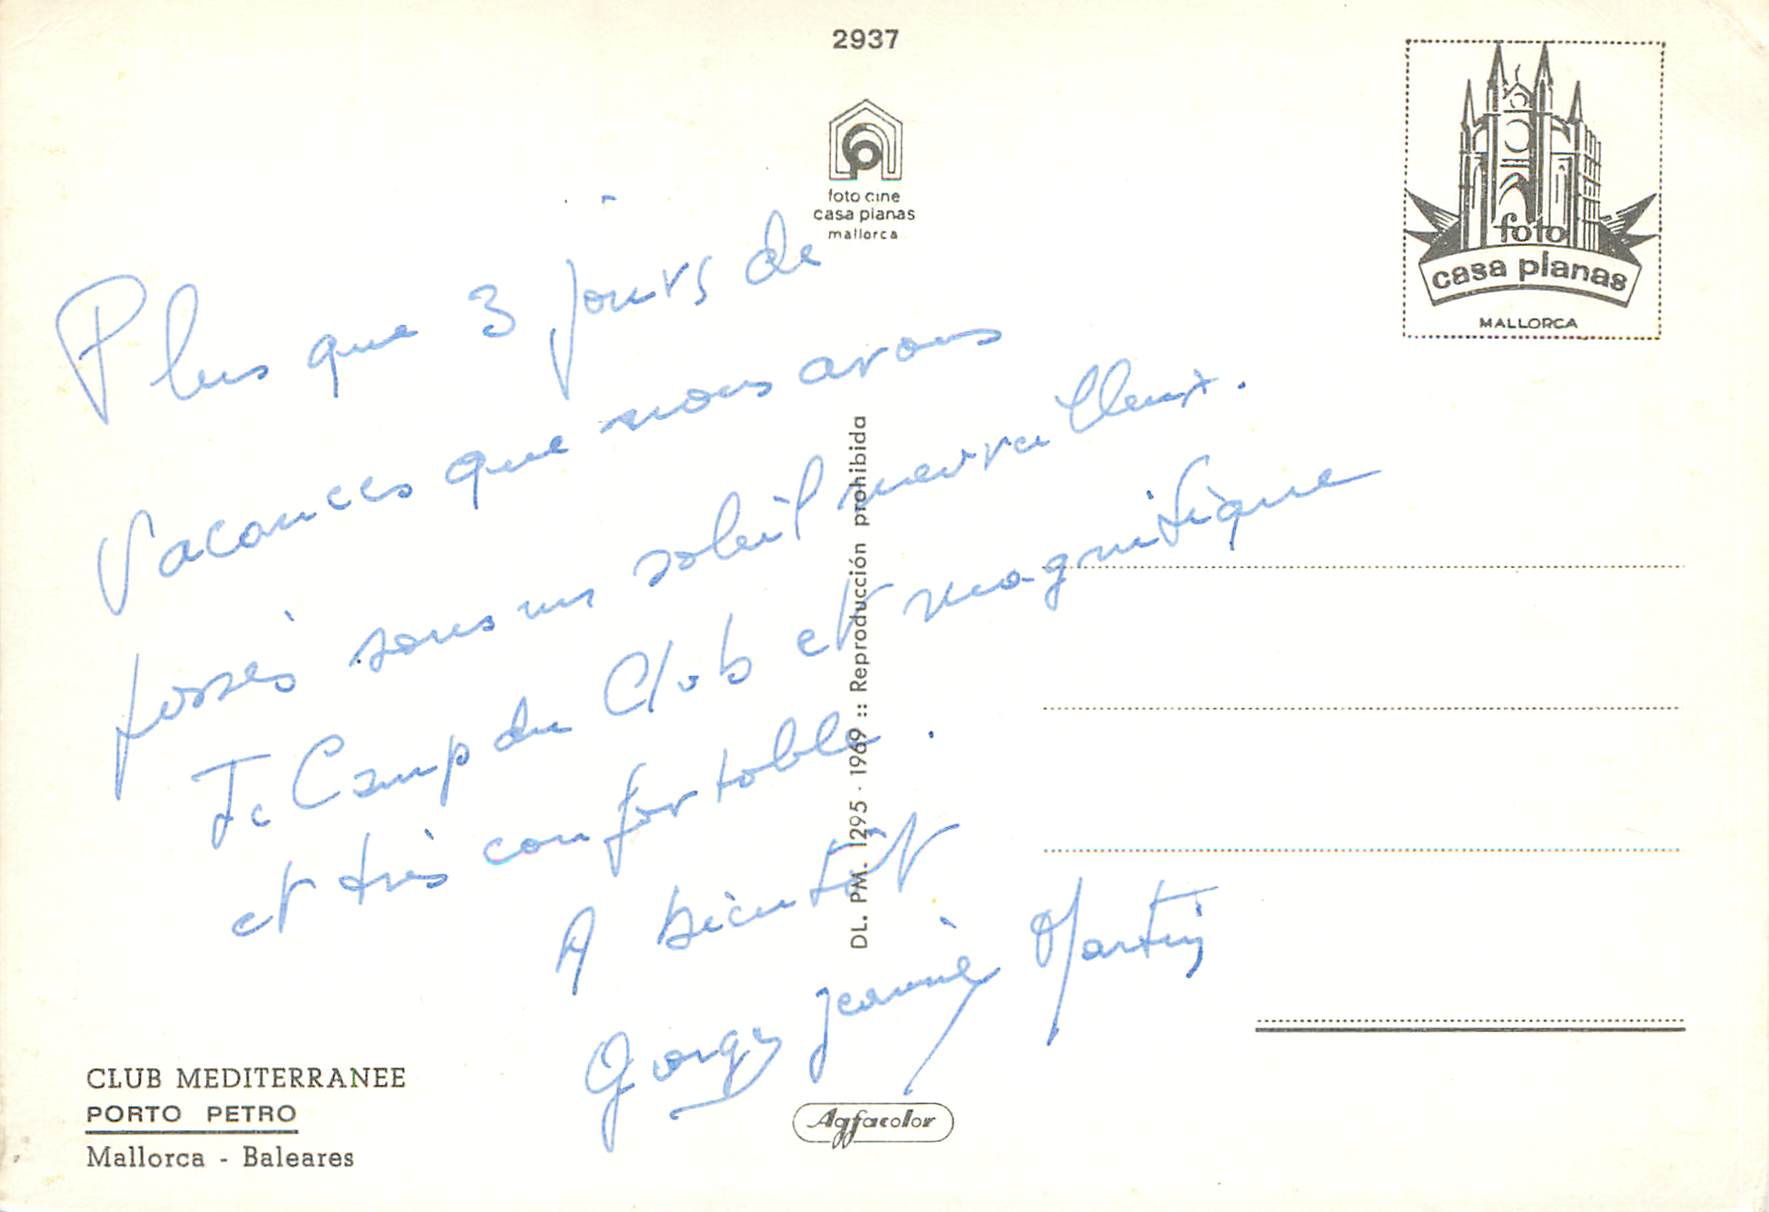 2937
foto cine
casa planas
mallorca
foto
casa planas
MALLORCA
Plus que 3 jours de
vacances que nous avons
passés sous un soleil merveilleux.
Le Camp du Club est magnifique
et très confortable.
A bientôt
Jeannie Martin
DL. PM. 1295 - 1969 :: Reproducción prohibida
CLUB MEDITERRANEE
PORTO PETRO
Mallorca - Baleares
Agfacolor